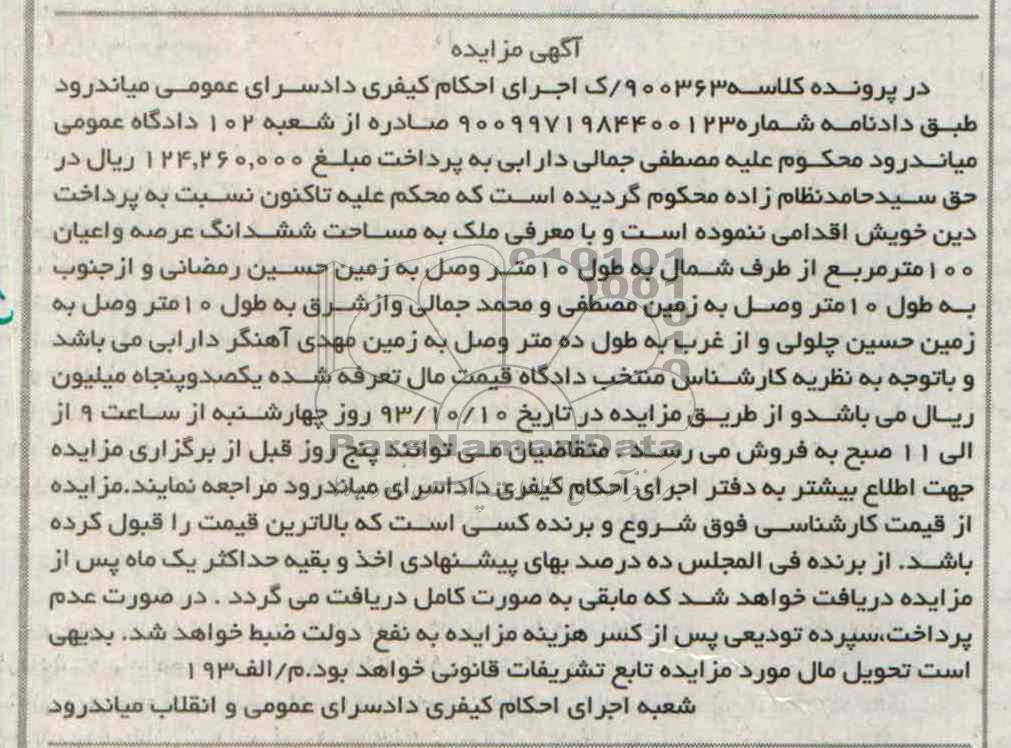 آگهی مزایده
در پرونده کلاسه۹۰۰۳۶۳/ک اجرای احکام کیفری دادسرای عمومی میاندرود
طبق دادنامه شماره۹۰۰۹۹۷۱۹۸۴۴۰۰۱۲۳ صادره از شعبه ۱۰۲ دادگاه عمومی
میاندرود محکوم علیه مصطفی جمالی دارابی به پرداخت مبلغ ۱۲۴,۲۶۰,۰۰۰ ریال در
حق سیدحامدنظام زاده محکوم گردیده است که محکم علیه تاکنون نسبت به پرداخت
دین خویش اقدامی ننموده است و با معرفی ملک به مساحت ششدانگ عرصه واعیان
۱۰۰مترمربع از طرف شمال به طول ۱۰متر وصل به زمین حسین رمضانی و ازجنوب
به طول ۱۰متر وصل به زمین مصطفی و محمد جمالی وازشرق به طول ۱۰متر وصل به
زمین حسین چلولی و از غرب به طول ده متر وصل به زمین مهدی آهنگر دارابی می باشد
و باتوجه به نظریه کارشناس منتخب دادگاه قیمت مال تعرفه شده یکصدوپنجاه میلیون
ریال می باشدو از طریق مزایده در تاریخ ۹۳/۱۰/۱۰ روز چهارشنبه از ساعت ۹ از
الی ۱۱ صبح به فروش می رسد . متقاضیان می توانند پنج روز قبل از برگزاری مزایده
جهت اطلاع بیشتر به دفتر اجرای احکام کیفری داداسرای میاندرود مراجعه نمایند.مزایده
از قیمت کارشناسی فوق شروع و برنده کسی است که بالاترین قیمت را قبول کرده
باشد. از برنده فی المجلس ده درصد بهای پیشنهادی اخذ و بقیه حداکثر یک ماه پس از
مزایده دریافت خواهد شد که مابقی به صورت کامل دریافت می گردد . در صورت عدم
پرداخت،سپرده تودیعی پس از کسر هزینه مزایده به نفع دولت ضبط خواهد شد. بدیهی
است تحویل مال مورد مزایده تابع تشریفات قانونی خواهد بود.م/الف۱۹۳
شعبه اجرای احکام کیفری دادسرای عمومی و انقلاب میاندرود
ParsNamadData